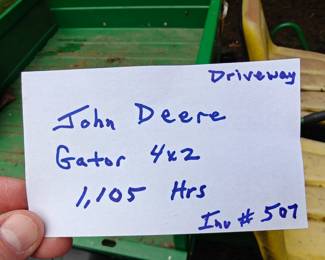 Driveway
John Deere
Gator 4x2
1,105 Hrs
Inv # 507